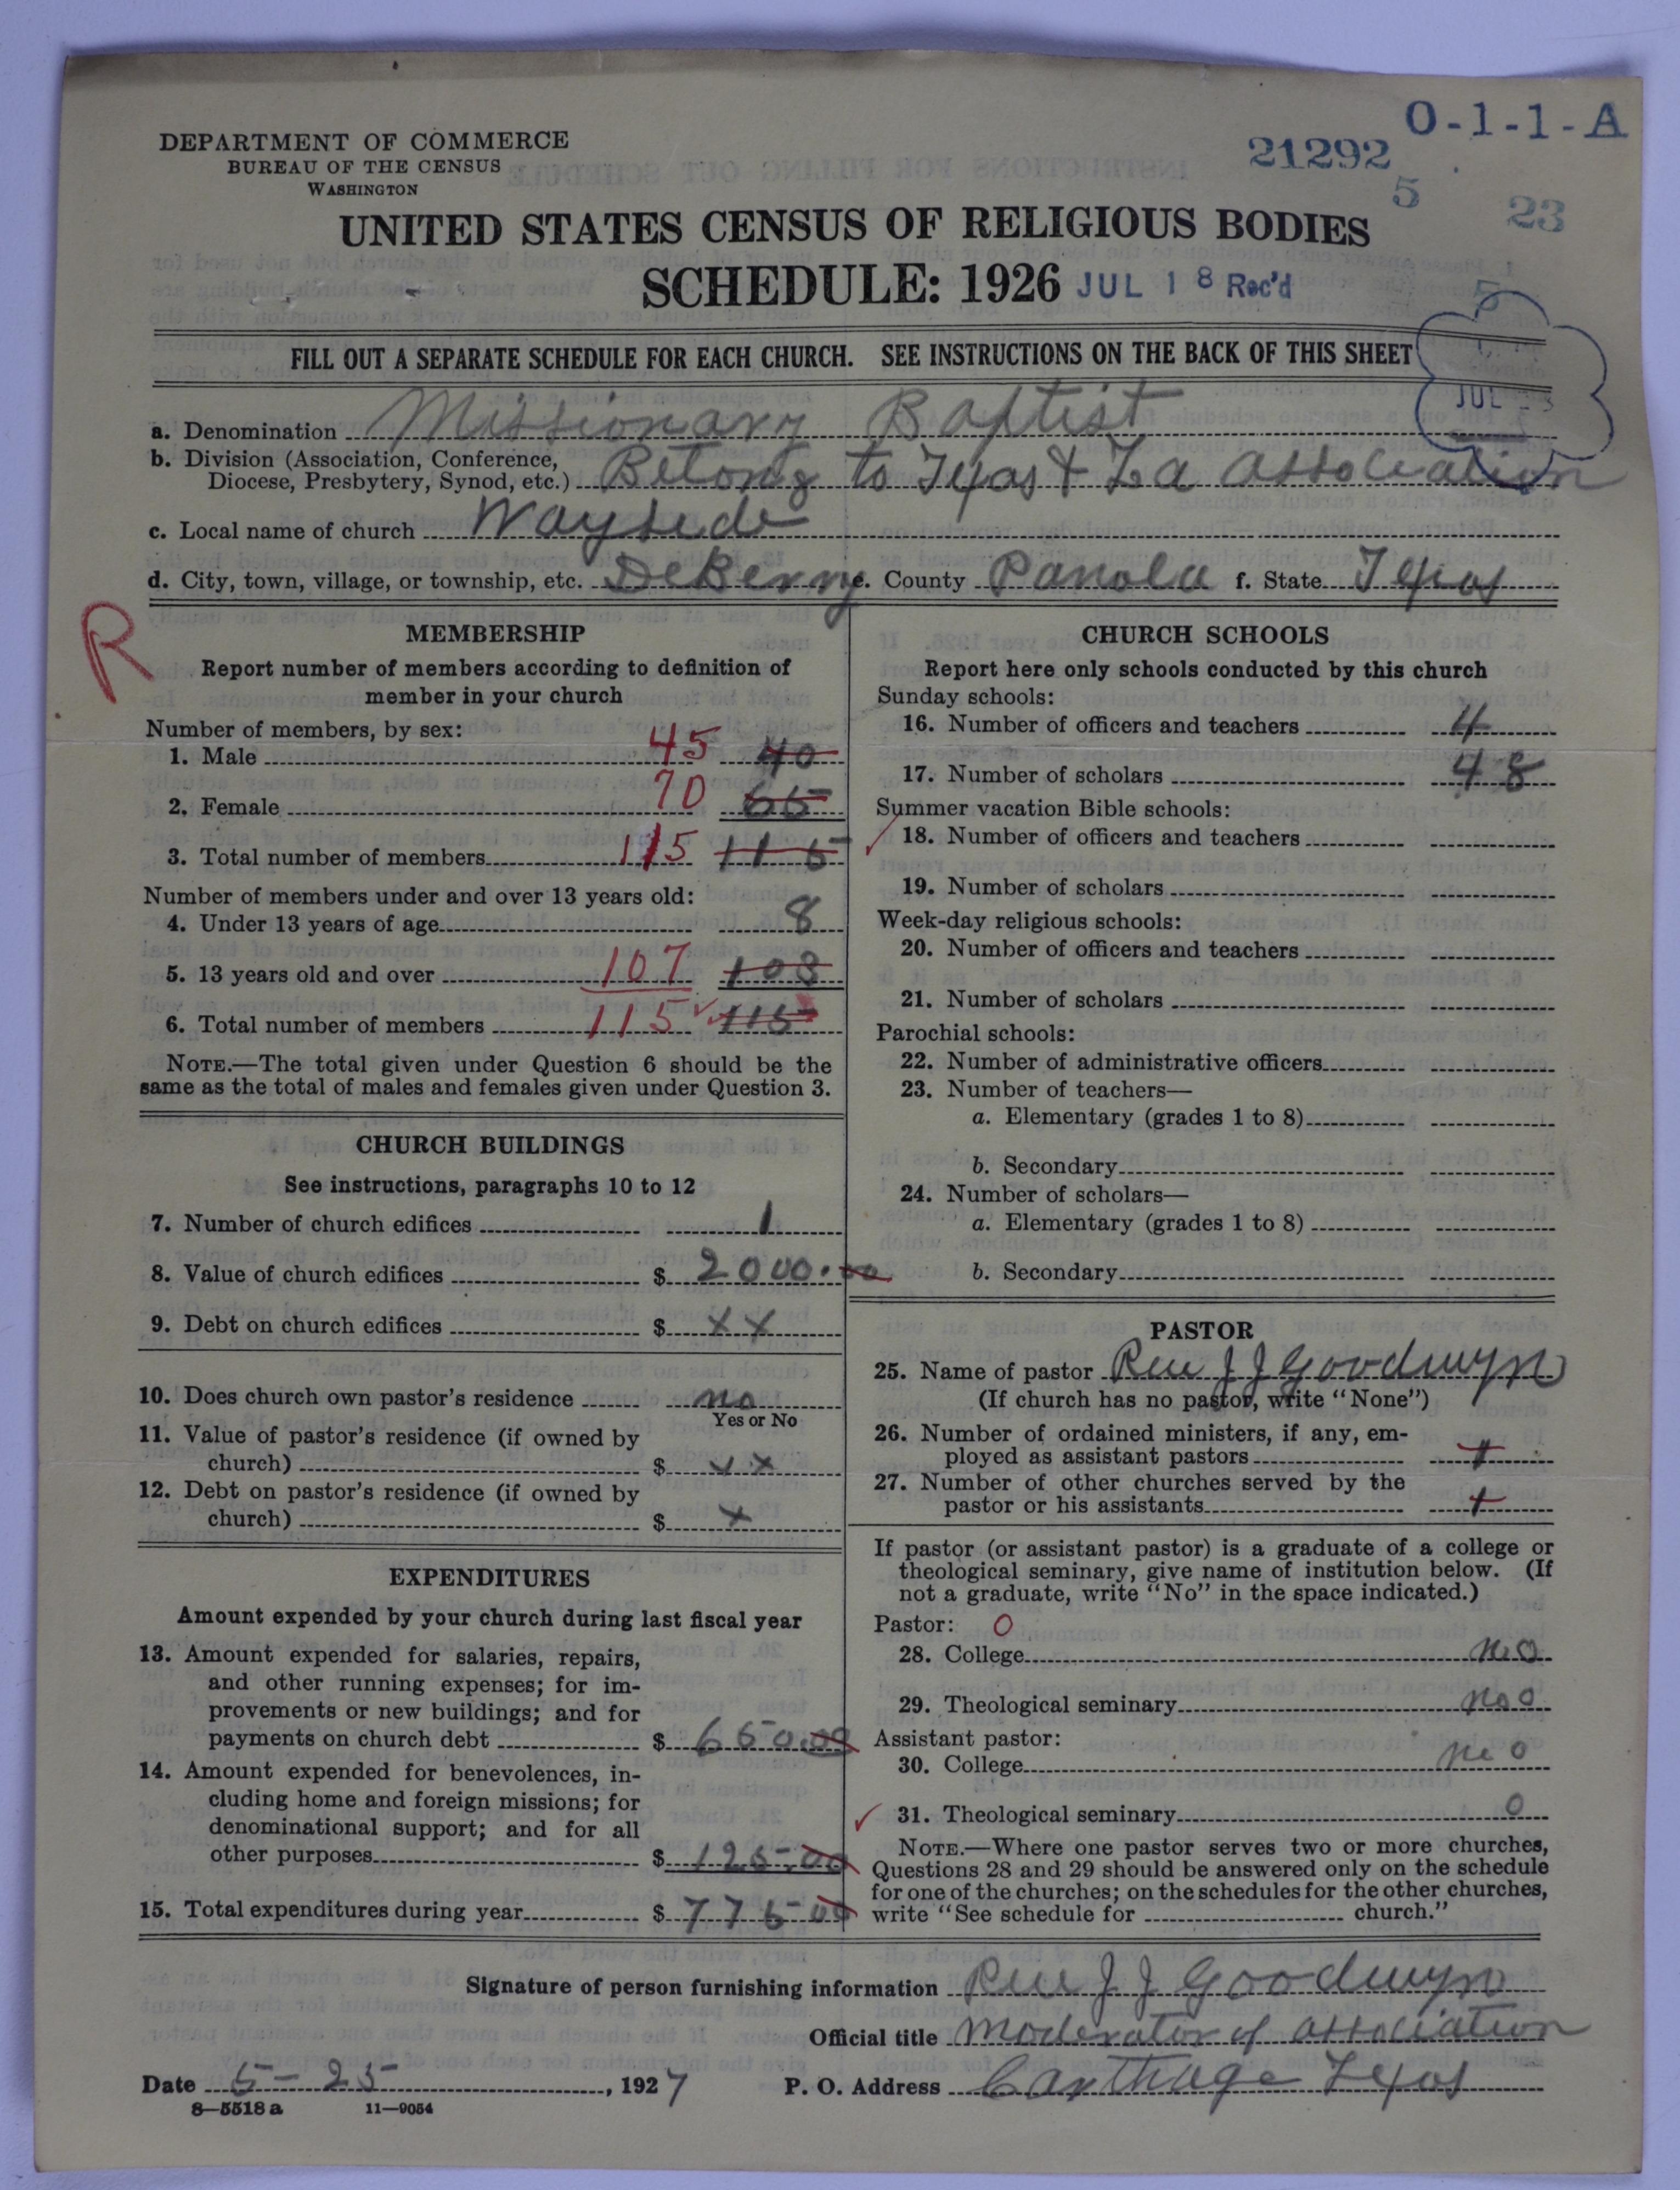 DEPARTMENT OF COMMERCE
BUREAU OF THE CENSUS
WASHINGTON
O-1-1-A
21292
5
23
UNITED STATES CENSUS OF RELIGIOUS BODIES
SCHEDULE: 1926 JUL 18 Rec'd
5
FILL OUT A SEPARATE SCHEDULE FOR EACH CHURCH. SEE INSTRUCTIONS ON THE BACK OF THIS SHEET
JUL
a. Denomination Missionary Baptist
b. Division (Association, Conference,
Diocese, Presbytery, Synod, etc.) Belong to Texas & La association
c. Local name of church Wayside
d. City, town, village, or township, etc. DeBerry e. County Panola f. State Texas
R
MEMBERSHIP
Report number of members according to definition of
member in your church
Number of members, by sex:
1. Male 45 40
2. Female 70 65
3. Total number of members 115 115
Number of members under and over 13 years old:
4. Under 13 years of age 8
5. 13 years old and over 107 103
6. Total number of members 115 115
NOTE.—The total given under Question 6 should be the
same as the total of males and females given under Question 3.
CHURCH BUILDINGS
See instructions, paragraphs 10 to 12
7. Number of church edifices 1
8. Value of church edifices $ 2000.00
9. Debt on church edifices $ x x
10. Does church own pastor's residence no
Yes or No
11. Value of pastor's residence (if owned by
church) $ x x
12. Debt on pastor's residence (if owned by
church) $ x
EXPENDITURES
Amount expended by your church during last fiscal year
13. Amount expended for salaries, repairs,
and other running expenses; for im-
provements or new buildings; and for
payments on church debt $ 650.00
14. Amount expended for benevolences, in-
cluding home and foreign missions; for
denominational support; and for all
other purposes $ 125.00
15. Total expenditures during year $ 775 00
CHURCH SCHOOLS
Report here only schools conducted by this church
Sunday schools:
16. Number of officers and teachers 4
17. Number of scholars 48
Summer vacation Bible schools:
18. Number of officers and teachers
19. Number of scholars
Week-day religious schools:
20. Number of officers and teachers
21. Number of scholars
Parochial schools:
22. Number of administrative officers
23. Number of teachers—
a. Elementary (grades 1 to 8)
b. Secondary
24. Number of scholars—
a. Elementary (grades 1 to 8)
b. Secondary
PASTOR
25. Name of pastor Rev J J Goodwyn
(If church has no pastor, write "None")
26. Number of ordained ministers, if any, em-
ployed as assistant pastors
27. Number of other churches served by the
pastor or his assistants
If pastor (or assistant pastor) is a graduate of a college or
theological seminary, give name of institution below. (If
not a graduate, write "No" in the space indicated.)
Pastor: O
28. College no
29. Theological seminary no o
Assistant pastor:
30. College no o
31. Theological seminary o
NOTE.—Where one pastor serves two or more churches,
Questions 28 and 29 should be answered only on the schedule
for one of the churches; on the schedules for the other churches,
write "See schedule for church."
Signature of person furnishing information Rev J J Goodwyn
Official title Moderator of association
Date 5-25, 1927 P. O. Address Carthage Texas
8-5518 a 11-9054